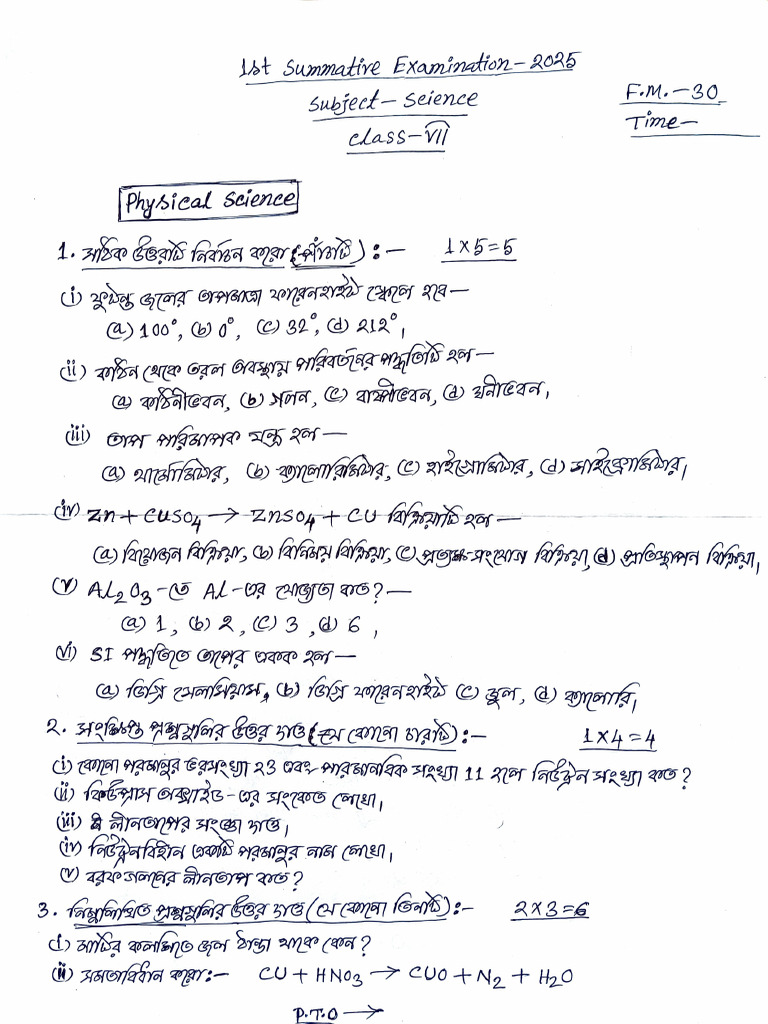 1st Summative Examination-2025
Subject- Science
Class-VII
F.M.-30
Time-
Physical Science
1. সঠিক উত্তরটি নির্বাচন করো (পাঁচটি) :- 1×5=5
(i) ফুটন্ত জলের তাপমাত্রা ফারেনহাইট স্কেলে হবে—
(a) 100°, (b) 0°, (c) 32°, (d) 212°,
(ii) কঠিন থেকে তরল অবস্থায় পরিবর্তনের পদ্ধতিটি হল—
(a) কঠিনীভবন, (b) গলন, (c) বাষ্পীভবন, (d) ঘনীভবন,
(iii) তাপ পরিমাপক যন্ত্র হল—
(a) থার্মোমিটার, (b) ক্যালোরিমিটার, (c) হাইগ্রোমিটার, (d) মাইক্রোমিটার,
(iv) Zn + CuSO₄ → ZnSO₄ + Cu বিক্রিয়াটি হল—
(a) বিয়োজন বিক্রিয়া, (b) বিনিময় বিক্রিয়া, (c) প্রত্যক্ষ-সংযোগ বিক্রিয়া, (d) প্রতিস্থাপন বিক্রিয়া,
(v) Al₂O₃-তে Al-এর যোজ্যতা কত?—
(a) 1, (b) 2, (c) 3, (d) 6,
(vi) SI পদ্ধতিতে তাপের একক হল—
(a) ডিগ্রি সেলসিয়াস, (b) ডিগ্রি ফারেনহাইট (c) জুল, (d) ক্যালোরি,
2. সংক্ষিপ্ত প্রশ্নগুলির উত্তর দাও (যে কোনো চারটি) :- 1×4=4
(i) কোনো পরমাণুর ভরসংখ্যা 23 এবং পারমানবিক সংখ্যা 11 হলে নিউট্রন সংখ্যা কত?
(ii) কিউপ্রাস অক্সাইড-এর সংকেত লেখো,
(iii) লীনতাপের সংজ্ঞা দাও,
(iv) নিউট্রনবিহীন একটি পরমাণুর নাম লেখো,
(v) বরফ গলনের লীনতাপ কত?
3. নিম্নলিখিত প্রশ্নগুলির উত্তর দাও (যে কোনো তিনটি) :- 2×3=6
(i) মাটির কলসিতে জল ঠান্ডা থাকে কেন?
(ii) সমতাবিধান করো:- Cu + HNO₃ → CuO + N₂ + H₂O
P.T.O →